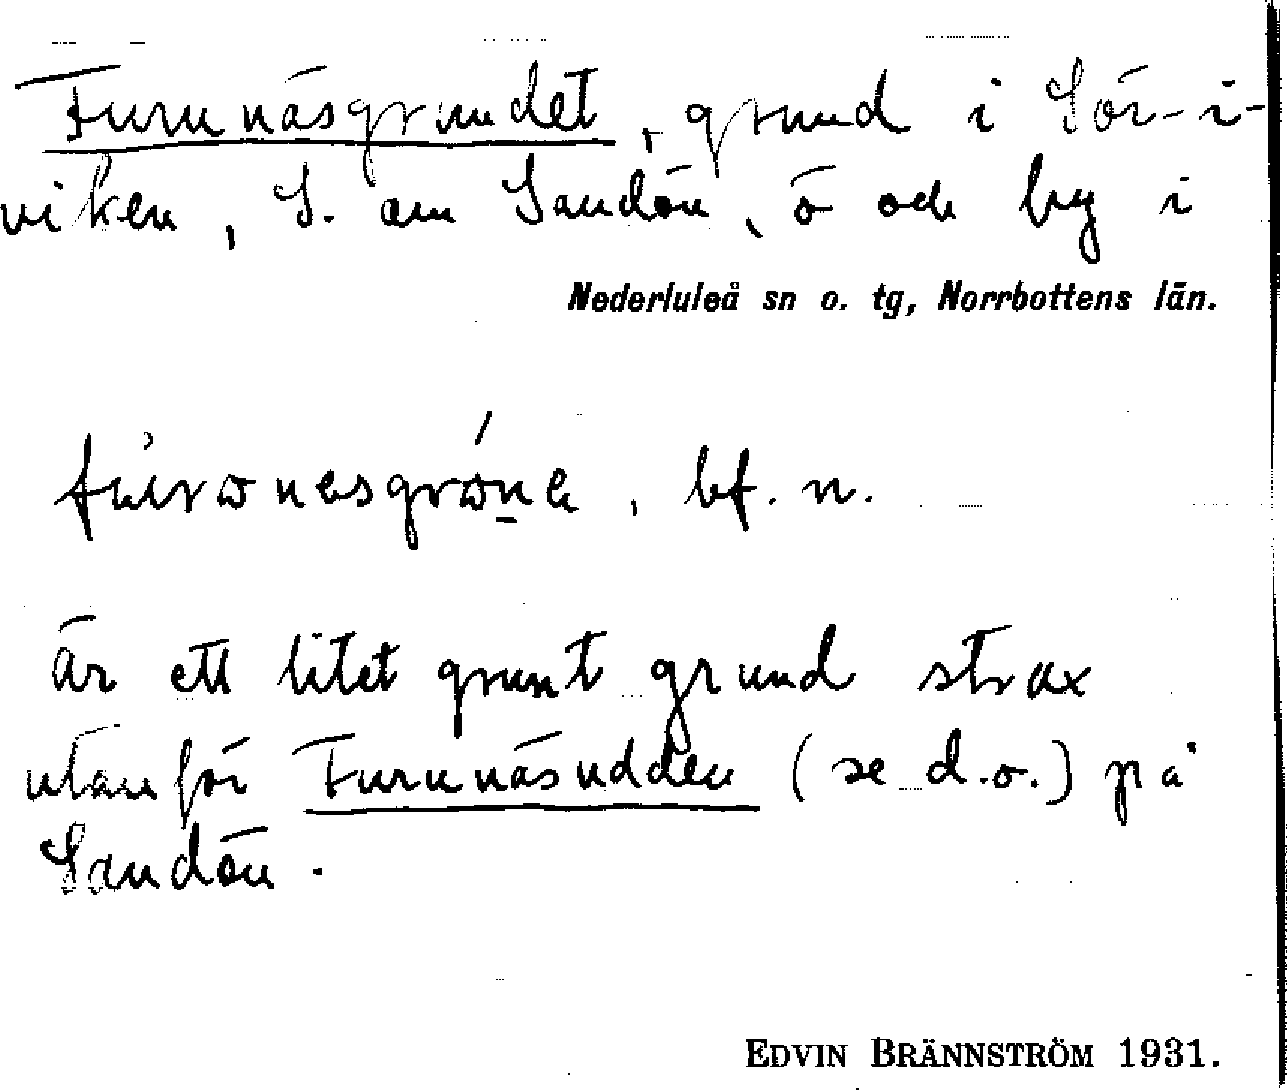 Furunäsgrundet, grund i Sör-i-
viken, S. om Sandön, ö och by i
Nederluleå sn o. tg, Norrbottens län.
bf. n.
är ett litet grunt grund strax
utanför Furunäsudden (se d.o.) på
Sandön.
EDVIN BRÄNNSTRÖM 1931.